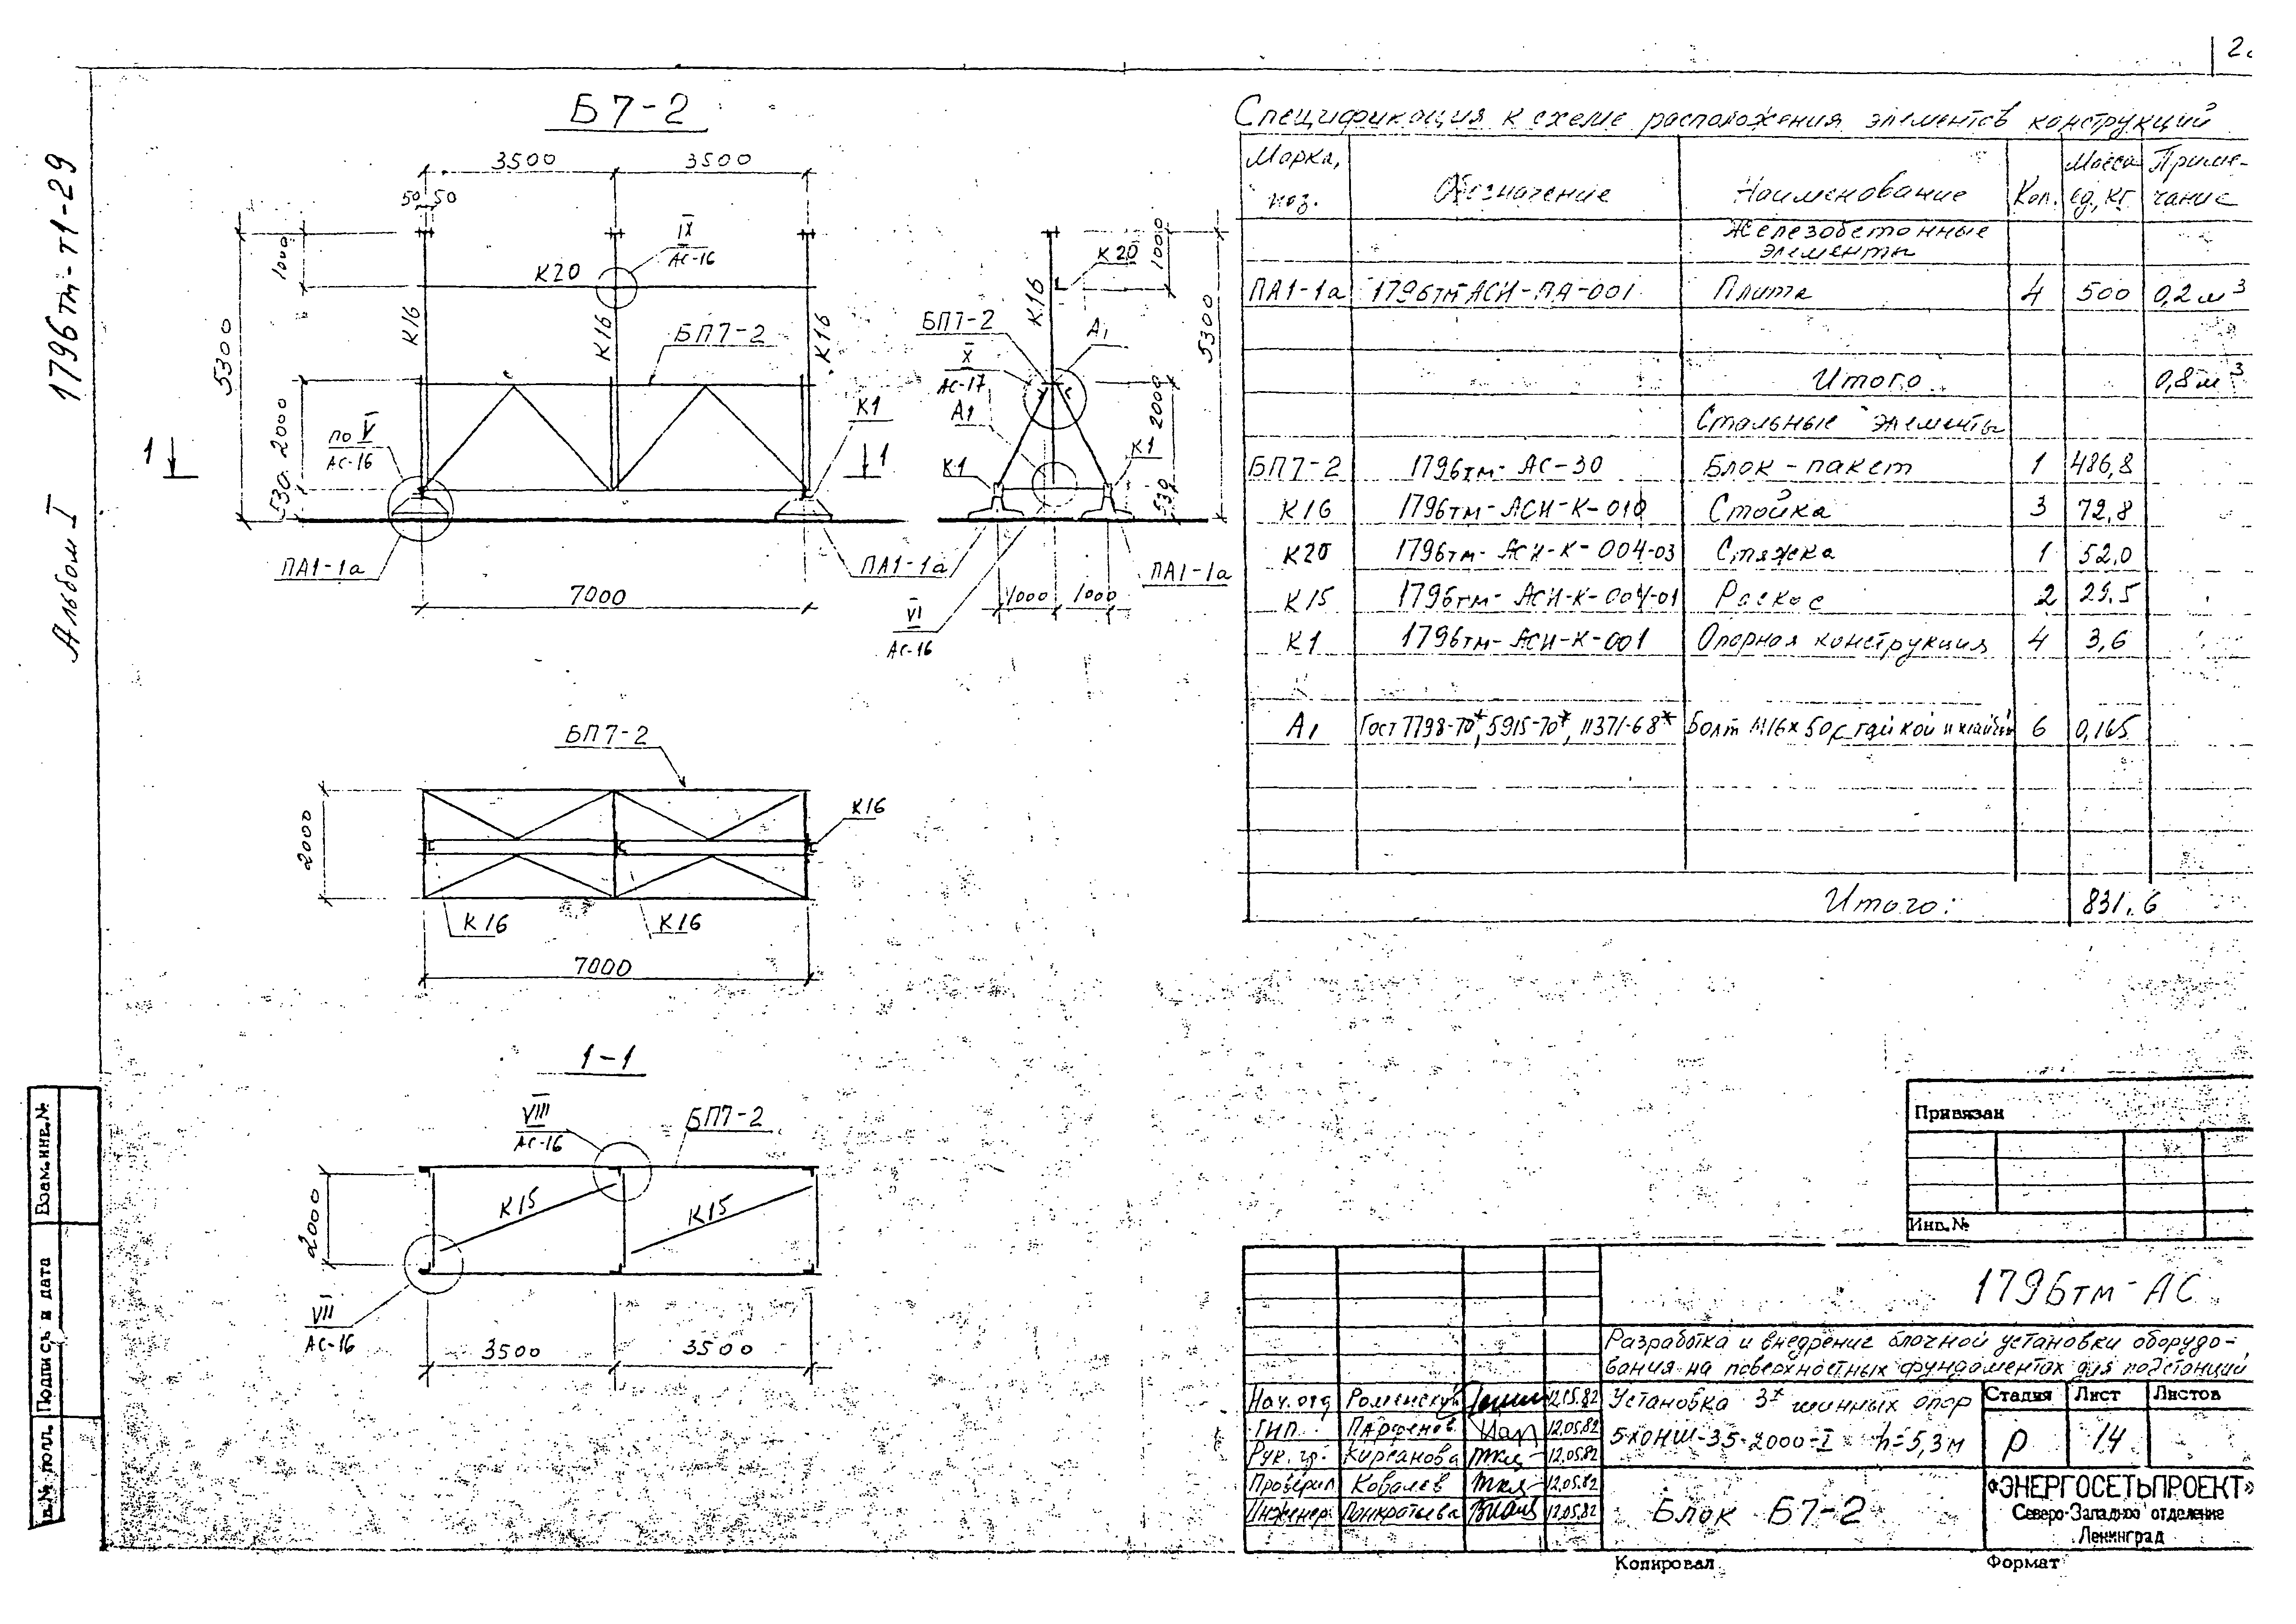 2
Б7-2
1796тм-т1-29
Альбом I
3500 3500
50 50
1000
5300
2000
530
К20
IX
АС-16
К16
К16
К16
БП7-2
по V
АС-16
К1
1 1
ПА1-1а
ПА1-1а
7000
К20
К16
1000
БП7-2
А1
X
АС-17
А1
5300
2000
530
К1
К1
ПА1-1а
1000 1000
VI
АС-16
БП7-2
2000
К16
К16
К16
7000
1-1
VIII
АС-16
БП7-2
К15
К15
2000
VII
АС-16
3500 3500
Спецификация к схеме расположения элементов конструкций
Марка, поз. Обозначение Наименование Кол. Масса ед, кг Приме-чание
Железобетонные
элементы
ПА1-1а 1796тм-АСИ-ПА-001 Плита 4 500 0,2м³
Итого 0,8м³
Стальные элементы
БП7-2 1796тм-АС-30 Блок-пакет 1 486,8
К16 1796тм-АСИ-К-010 Стойка 3 72,8
К20 1796тм-АСИ-К-004-03 Стяжка 1 52,0
К15 1796тм-АСИ-К-004-01 Раскос 2 29.5
К1 1796тм-АСИ-К-001 Опорная конструкция 4 3,6
А1 Гост 7798-70*, 5915-70*, 11371-68* Болт М16х50 с гайкой и шайбой 6 0,165
Итого: 831.6
Привязан
Инв.№
1796тм-АС
Разработка и внедрение блочной установки оборудо-
вания на поверхностных фундаментах для подстанций
Нач. отд Роменский 12.05.82
ГИП Парфенов 12.05.82
Рук. гр. Кирсанова 12.05.82
Проверил Ковалев 12.05.82
Инженер Панкратьева 12.05.82
Установка 3х шинных опор
5хОНШ-35-2000-I h=5,3м
Стадия Лист Листов
Р 14
Блок Б7-2
«ЭНЕРГОСЕТЬПРОЕКТ»
Северо-Западное отделение
Ленинград
Копировал
Формат
Взам.инв.№
Подпись и дата
в.№ полл.